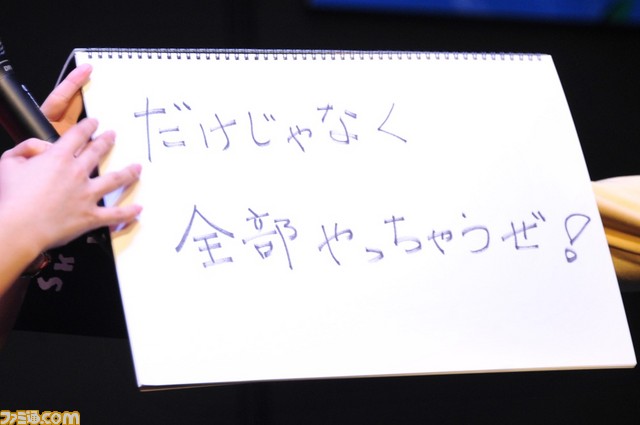 だけじゃなく
全部やっちゃうぜ!
ファミ通.com